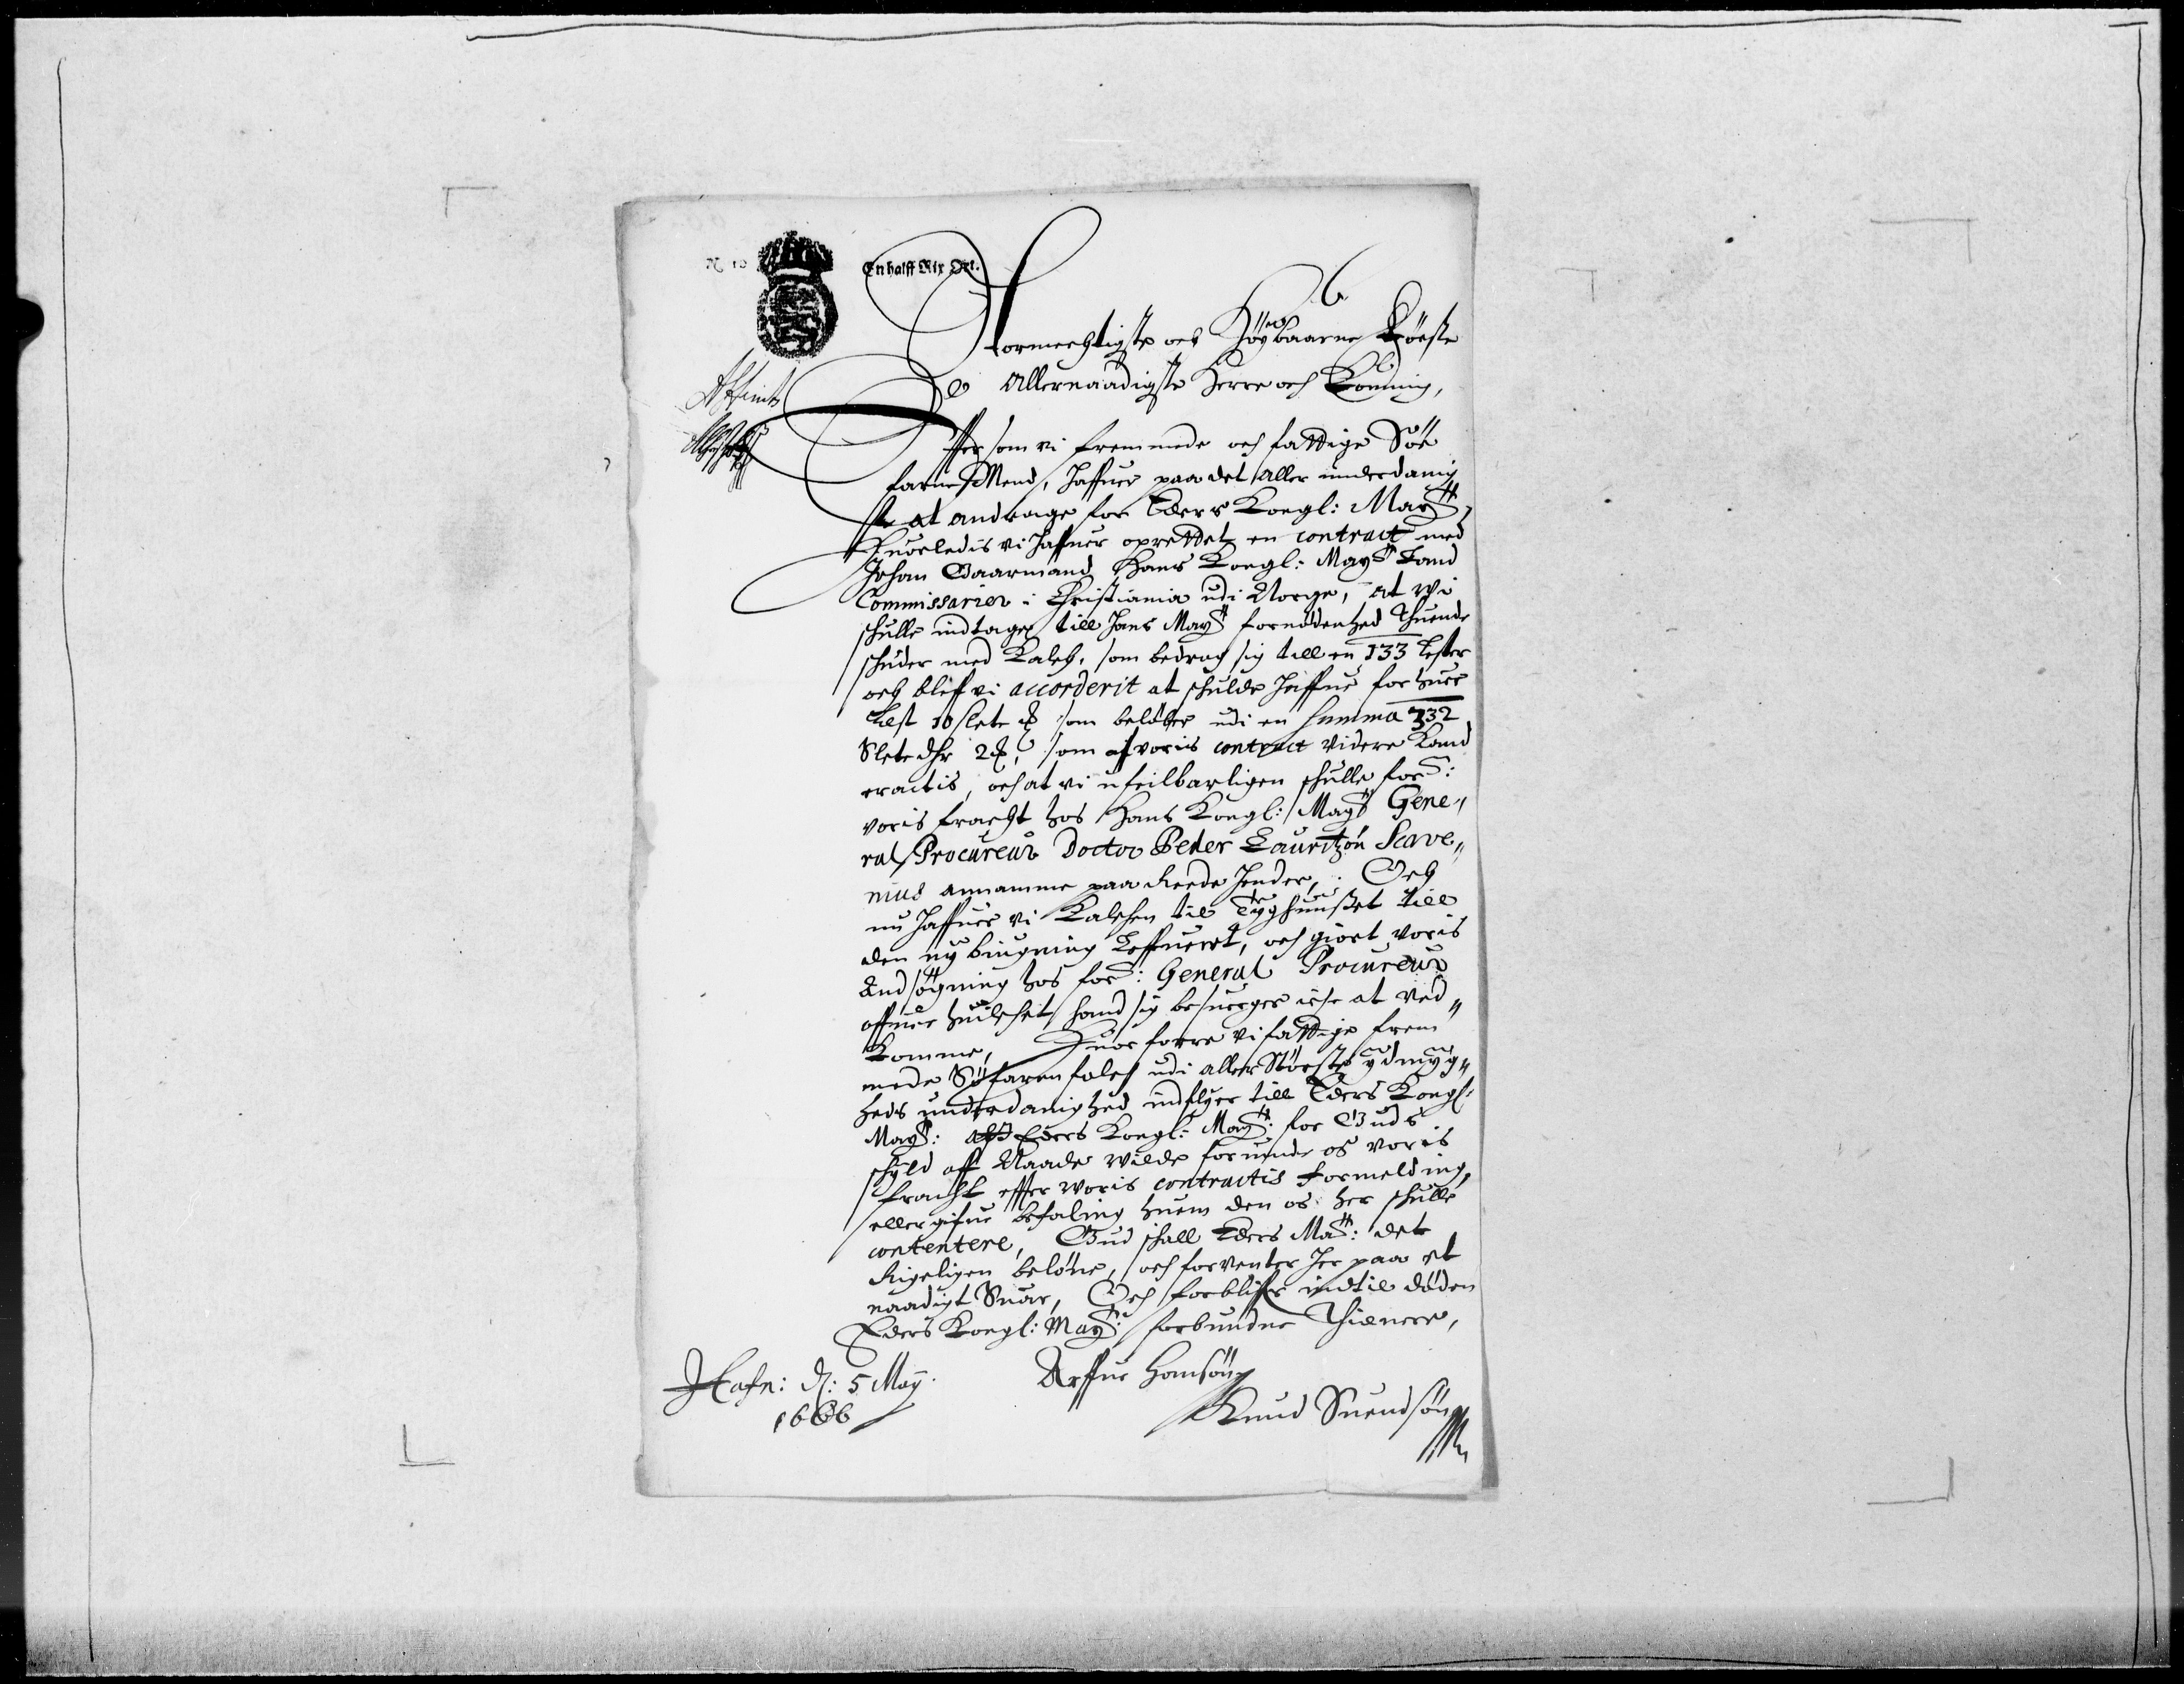 No 10
En halff Rix Ort.
6
Stormechtigste och Höybaarne Förste
Allernaadigste Herre och Konning,
Effter som vi fremmede och fattige Söe
farne Mend, haffuer paa det aller underdanig
ste at andrage for Eders Kongl: Maytt,
Huorledis vi haffuer oprettet en contract med
Johan Gaarmand Hans Kongl: Maytt Land
Commissarier i Christiania udi Norge, at wi
schulle indtage till hans Maytt fornødenhed Thuende
schuder med Kalch, som bedrog sig till en 133 Lester
och bleff vi accorderit at schulde haffue for huer
Lest 10 slete som beløber udi en summa 332
Slete dlr 2, som aff voris contract videre kand
eractis, och at vi ufeilbarligen schulle ford:
voris fracht hos Hans Kongl: Maytt Gene,,
ral Procureur Doctor Peder Lauritzøn Scave,,
nius annamme paa Reede hender, Och
nu haffuer vi Kalchen til Tyghuusset till
den ny biugning Leffueret, och giort voris
Andsøgning hos ford: General Procureur
offuer huilchet hand sig besuerger iche at ved,,
komme, Huor forre vi fattige frem
mede Söfaren folch udi aller Störste ydmyg,,
heds underdanighed indflyer till Eders Kongl:
Maytt: Eders Kongl: Maytt: for Guds
schyld aff Naade wilde forunde os voris
fracht effter woris contractis formelding,
eller gifue befaling huem den os her schulle
contentere, Gud schall Eders Matt: dete
Rigeligen beløne, och forventer her paa et
naadigt Suar, Och forbliffr indtil døden
Eders Kongl: Maytt: forbundne Thienere,
Hafn: d: 5 Maij
1666
Arffue Hansön
Knud Suendsön